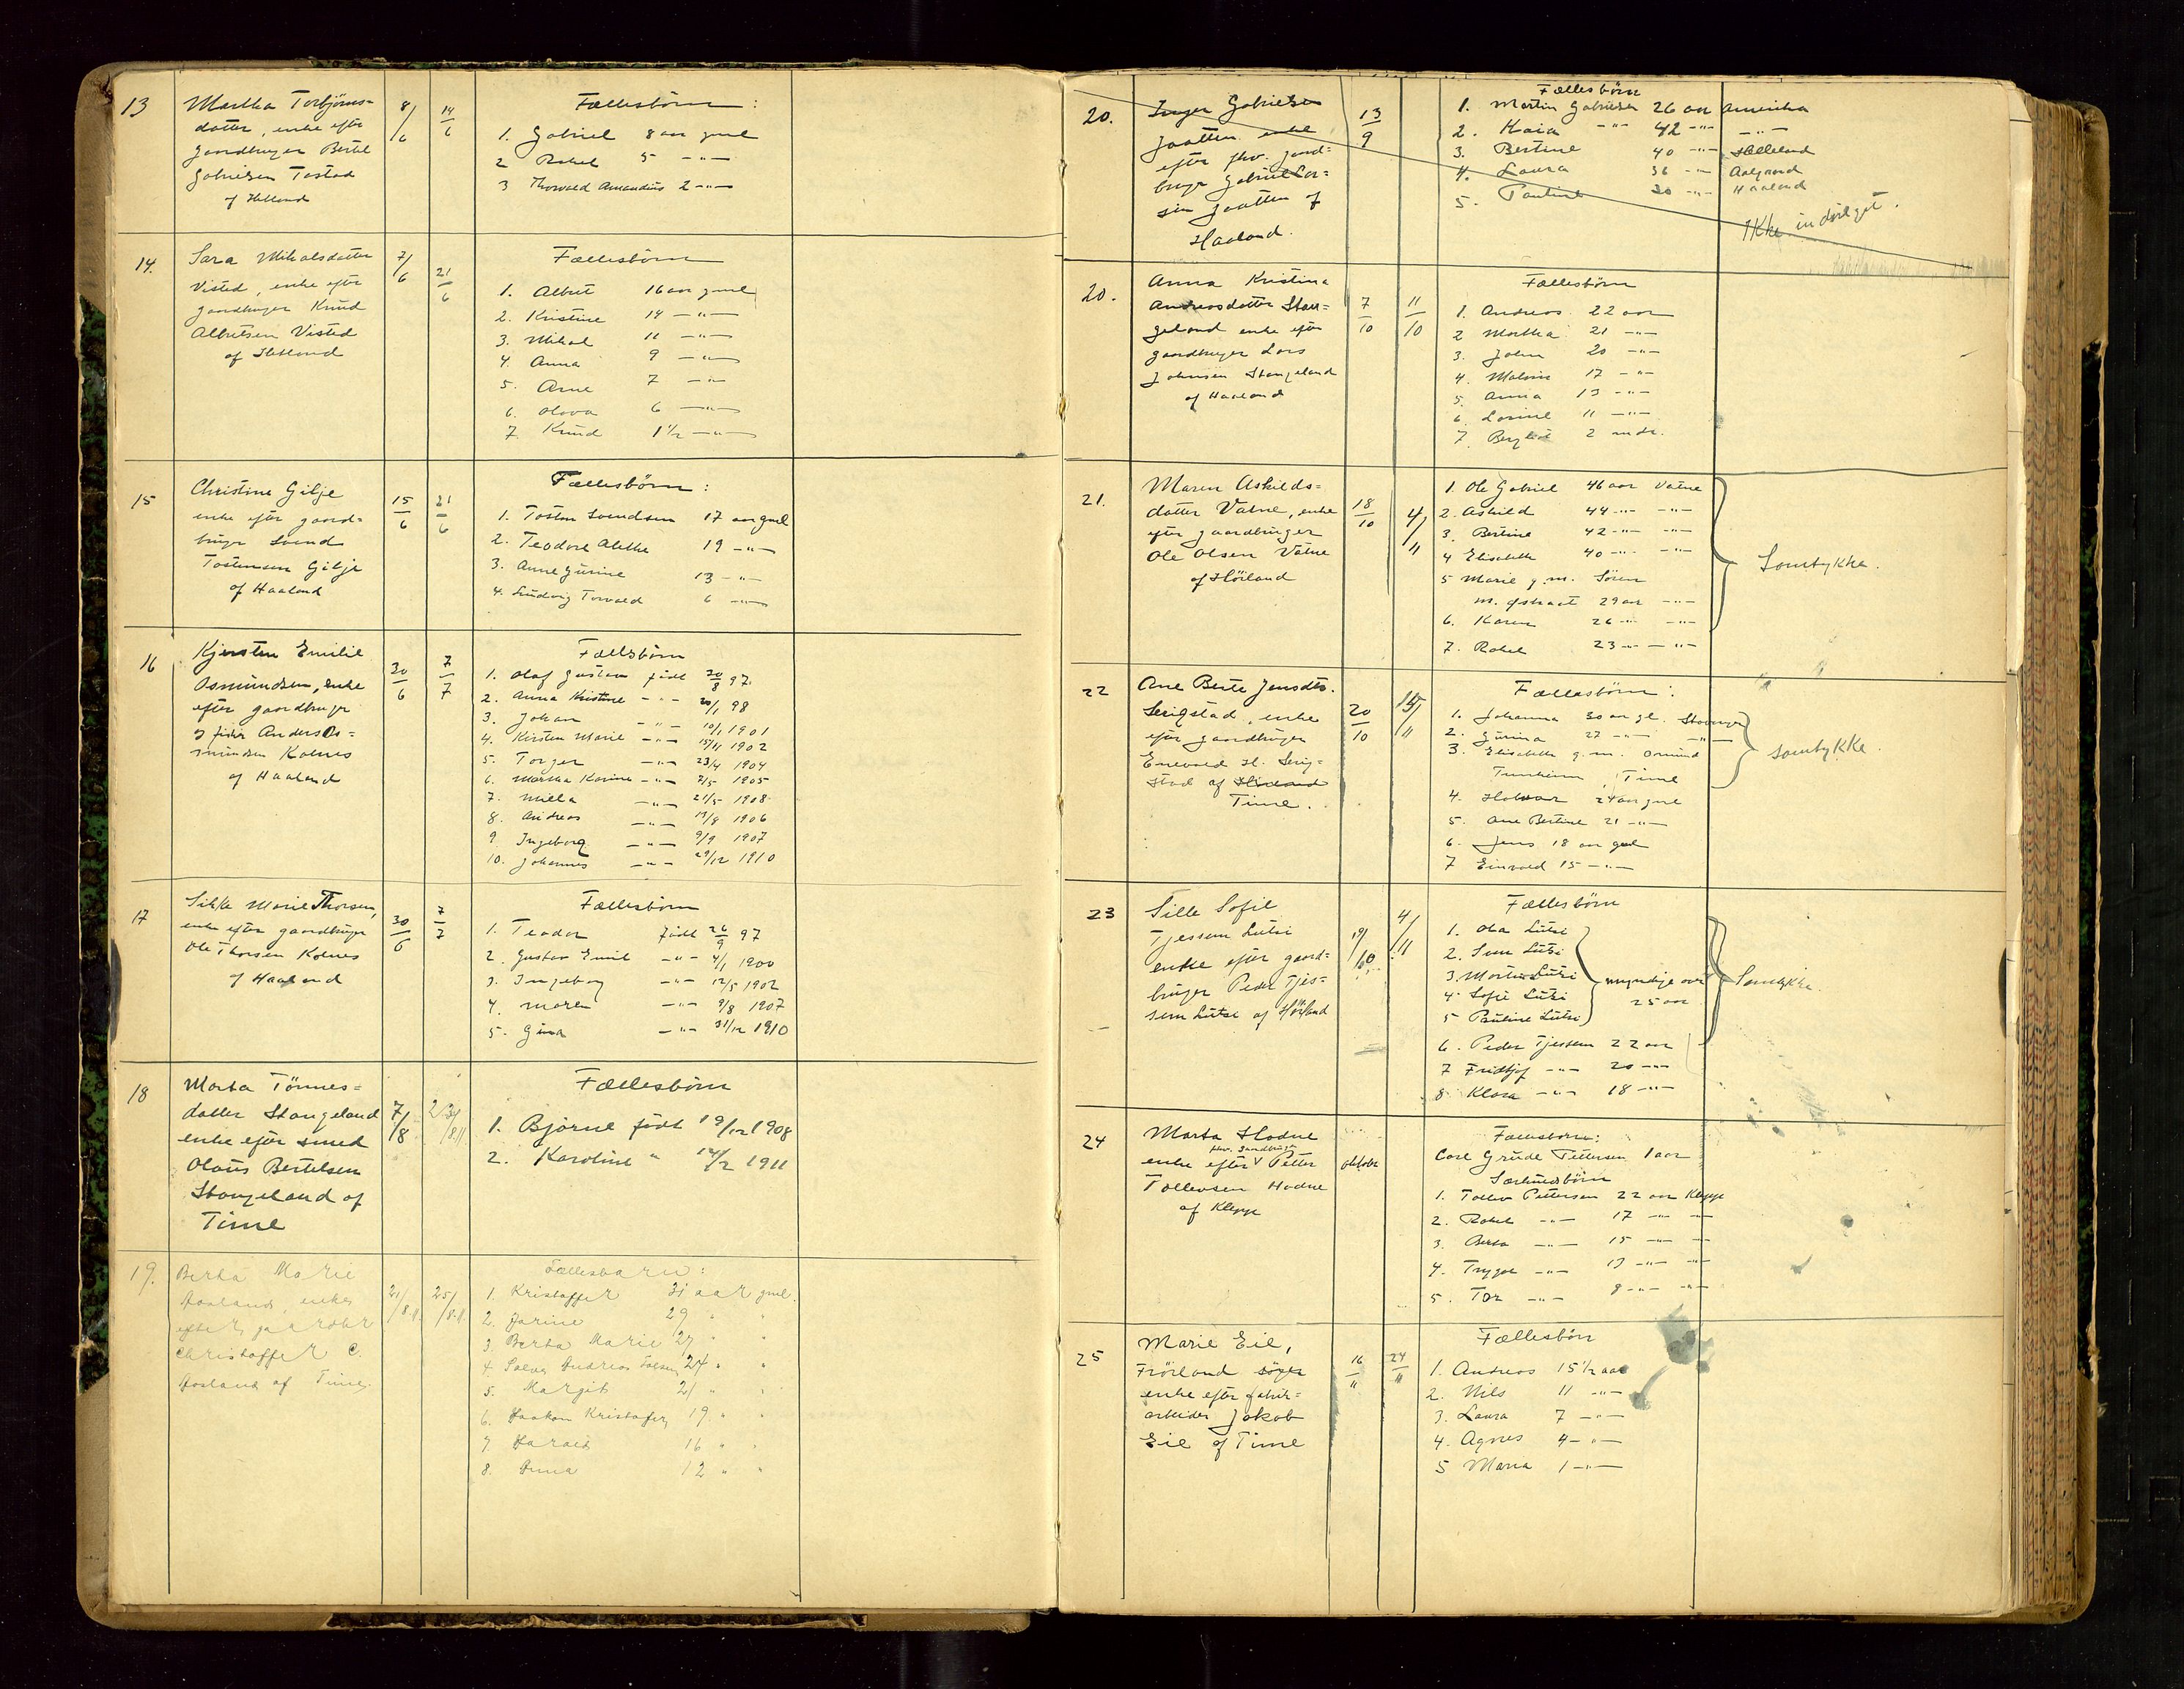 13 Martha Torbjørns= 8/6 14/6 Fællesbörn:
datter, enke efter 1. Gabriel 8 aar gml
gaardbruger Bertel 2 Rakel 5 -"-
Gabrielsen Tastad 3 Thorvald Amandus 2 -"-
af Hetland
14. Sara Mikalsdatter 7/6 21/6 Fællesbörn
Visted, enke efter 1. Albret 16 aar gml
gaardbruger Knud 2. Kristine 14 -"-
Albretsen Visted 3. Mikal 11 -"-
af Hetland 4. Anna 9 -"-
5. Arne 7 -"-
6. Olava 6 -"-
7. Knud 1 1/2 -"-
15 Christine Gilje 15/6 21/6 Fællesbörn:
enke efter gaard= 1. Tosten Svendsen 17 aar gml
bruger Svend 2. Teodore Alethe 19 -"-
Tostensen Gilje 3. Anne Gurine 13 -"-
af Haaland 4. Ludvig Torvald 6 -"-
16 Kjersten Emilie 30/6 7/7 Fællsbörn
Osmundsen, enke 1. Olaf Gustav født 30/8 97.
efter gaardbruger 2. Anna Kristine -"- 20/1 98
og fisker Anders Os= 3. Johan -"- 10/1 1901
mundsen Kolnes 4. Kirsten Marie -"- 15/11 1902
af Haaland 5. Torger -"- 23/4 1904
6. Martha Karine -"- 2/5 1905
7. Milla -"- 21/5 1908
8. Andreas -"- 13/8 1906
9 Ingeborg -"- 9/9 1907
10. Johannes -"- 29/12 1910
17 Sikke Marie Thorsen, 30/6 7/7 Fællesbörn
enke efter gaardbruger 1. Teodor født 26/9 97
Ole Thorsen Kolnes 2. Gustav Emil -"- 4/1 1900
af Haaland 3. Ingeborg -"- 12/5 1902
4. Maren -"- 9/8 1907
5. Gina -"- 31/12 1910
18 Marta Tönnes= 7/8 Fællesbörn
datter Stangeland 1. Bjørne født 19/12 1908
enke efter smed 2. Karoline " 12/2 1911
Olaus Bertelsen
Stangeland af
Time
19. Berta Marie 21/8.11. 25/8.11. Fællesbarn:
Aasland, enke 1. Kristoffer 31 aar gml.
efter gaardbr 2. Jarine 29 " "
Christoffer C. 3. Berta Marie 27 " "
Aasland af Time. 4. Salve Andreas Tolsen 24 " "
5. Margit 21 " "
6. Haakon Kristofer 19 " "
7. Harald 16 " "
8. Anna 12 " "
20. Inger Gabrielsen 13/9 Fællesbörn
Jaatten enke 1. Martin Gabrielsen 26 aar Amerika
efter fhv. gaard= 2. Kaia -"- 42 -"- -"-
bruger Gabriel Lar= 3. Bertine 40 -"- Helleland
sen Jaatten af 4. Laura 36 -"- Aalgaard
Haaland. 5. Pauline 30 -"- Haaland
Ikke indvilget.
20. Anna Kristina 7/10 11/10 Fællesbörn
Andreasdatter Stan= 1. Andreas 22 aar
geland enke efter 2 Martha 21 -"-
gaardbruger Lars 3. John 20 -"-
Johnsen Stangeland 4. Malene 17 -"-
af Haaland 5. Anna 13 -"-
6. Lovine 11 -"-
7. Bergliot 2 mdr.
21. Maren Askilds= 18/10 4/11 1. Ole Gabriel 46 aar Vatne
datter Vatne, enke 2. Askild 44 -"- -"-
efter gaardbruger 3. Bertine 42 -"- -"-
Ole Olsen Vatne 4 Elisabeth 40 -"- -"- Samtykke.
af Höiland 5 Marie g. m. Sören
29 aar -"-
6. Karen 26 -"- -"-
7. Rakel 23 -"- -"-
22 Ane Berte Jensdtr. 20/10 15/11 Fællesbörn:
Serigstad, enke 1. Johanna 30 aar gl. Stavanger
efter gaardbruger 2. Gurina 27 -"- -"-
Enevald H. Serig= 3. Elisabeth g. m. Omund samtykke.
stad af Höiland Tunheim, Time
Time. 4. Halvor 24 aar gml
5. Ane Bertine 21 -"-
6. Jens 18 aar gml
7 Einvald 15 -"-
23 Sille Sofie 19/10 4/11 Fællesbörn
Tjessem Lutsi 1. Olia Lutsi
enke efter gaard= 2. Sem Lutsi
bruger Peder Tjes= 3. Martin Lutsi myndige over Samtykke.
sem Lutse af Höiland 4. Sofie Lutsi 25 aar
5 Pauline Lutsi
6. Peder Tjessem 22 aar
7 Fridtjof -"- 20 -"-
8. Klara -"- 18 -"-
24 Marta Hodne oktober Fællesbörn:
fhv. gaardbruger
enke efter Petter Carl Grude Pettersen 1 aar
Tollevsen Hodne Særkuldsbörn
af Klepp 1. Tollev Pettersen 22 aar Klepp
2. Rakel -"- 17 -"- -"-
3. Berta -"- 15 -"- -"-
4. Trygve -"- 13 -"- -"-
5. Tor -"- 9 -"- -"-
25 Marie Eie, 16/11 24/11 Fællesbörn
Fröiland 1. Andreas 15 1/2 aar
enke efter fabrik= 2. Nils 11 -"-
arbeider Jakob 3. Laura 7 -"-
Eie af Time 4. Agnes 4 -"-
5 Maria 1 -"-